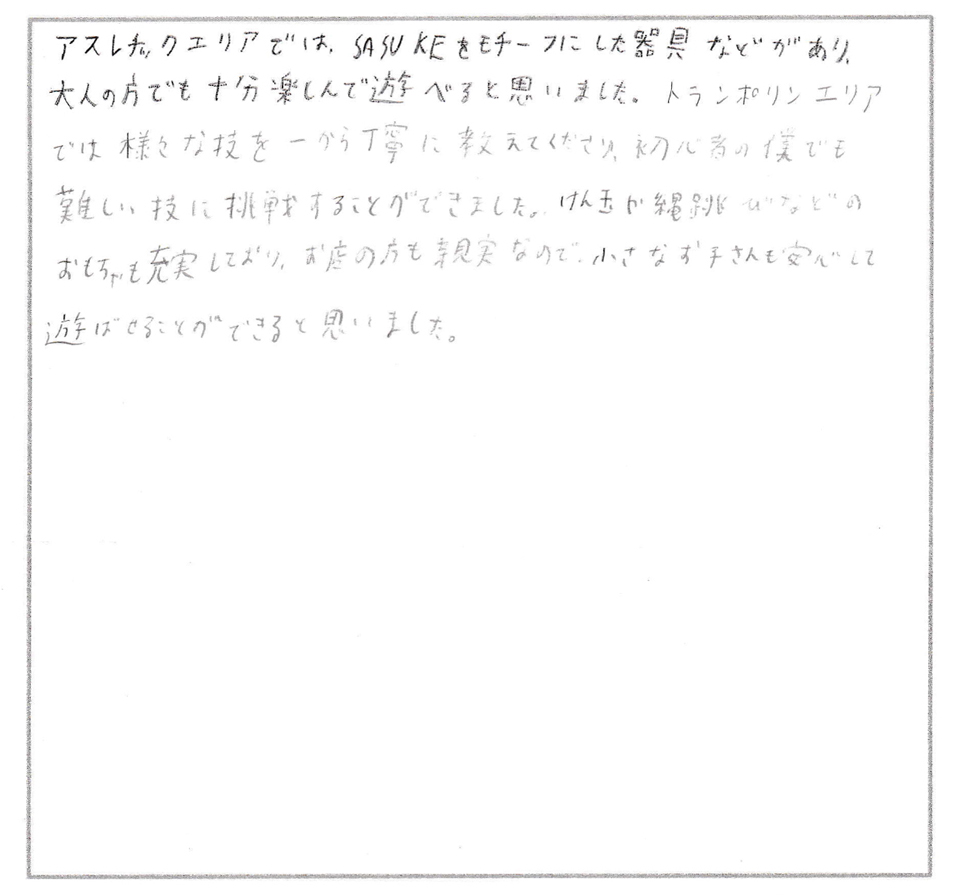 アスレチックエリアでは、SASUKEをモチーフにした器具などがあり、
大人の方でも十分楽しんで遊べると思いました。トランポリンエリア
では様々な技を一から丁寧に教えてくださり、初心者の僕でも
難しい技に挑戦することができました。けん玉や縄跳びなどの
おもちゃも充実しており、お店の方も親実なので、小さなお子さんも安心して
遊ばせることができると思いました。